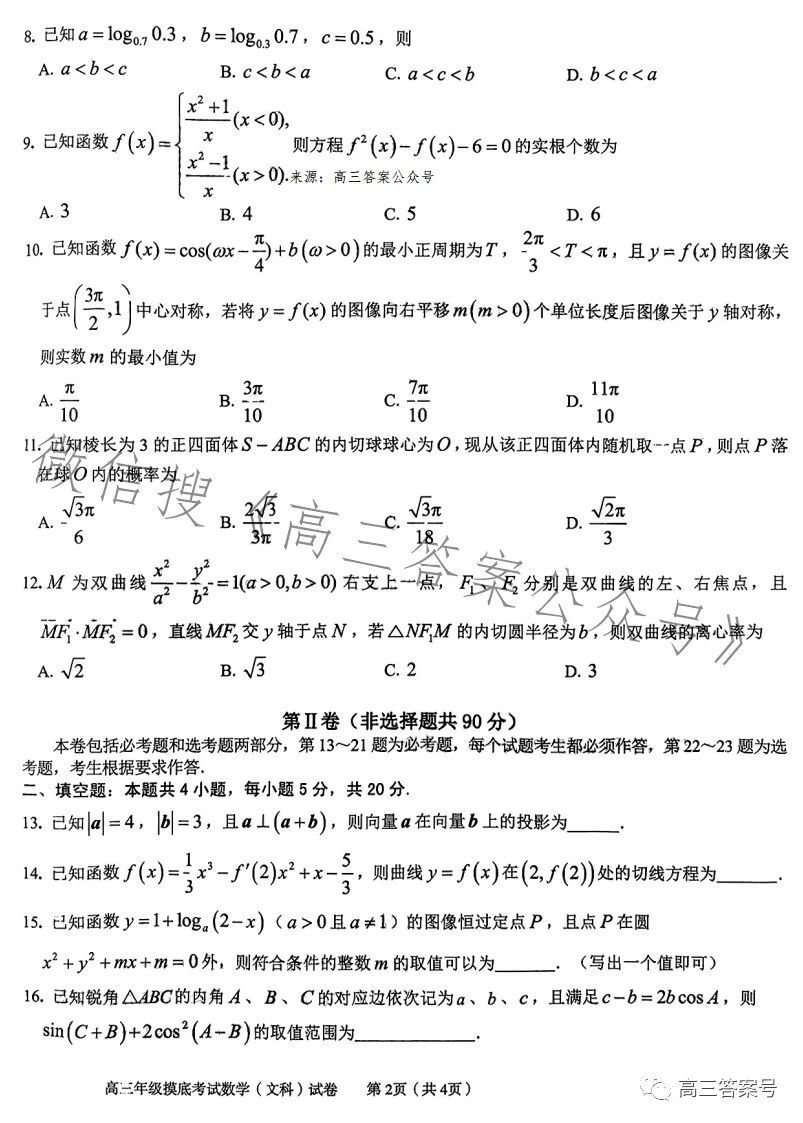 8. 已知 a = log₀.₇ 0.3，b = log₀.₃ 0.7，c = 0.5，则
A. a < b < c B. c < b < a C. a < c < b D. b < c < a
9. 已知函数 f(x) = { (x²+1)/x (x<0), (x²−1)/x (x>0). 则方程 f²(x) − f(x) − 6 = 0 的实根个数为
来源：高三答案公众号
A. 3 B. 4 C. 5 D. 6
10. 已知函数 f(x) = cos(ωx − π/4) + b (ω > 0) 的最小正周期为 T，2π/3 < T < π，且 y = f(x) 的图像关
于点 (3π/2, 1) 中心对称，若将 y = f(x) 的图像向右平移 m(m > 0) 个单位长度后图像关于 y 轴对称，
则实数 m 的最小值为
A. π/10 B. 3π/10 C. 7π/10 D. 11π/10
11. 已知棱长为 3 的正四面体 S − ABC 的内切球球心为 O，现从该正四面体内随机取一点 P，则点 P 落
在球 O 内的概率为
A. √3π/6 B. 2√3/3π C. √3π/18 D. √2π/3
12. M 为双曲线 x²/a² − y²/b² = 1(a > 0, b > 0) 右支上一点，F₁、F₂ 分别是双曲线的左、右焦点，且
MF₁ · MF₂ = 0，直线 MF₂ 交 y 轴于点 N，若 △NF₁M 的内切圆半径为 b，则双曲线的离心率为
A. √2 B. √3 C. 2 D. 3
微信搜《高三答案公众号》
第Ⅱ卷（非选择题共 90 分）
本卷包括必考题和选考题两部分，第 13～21 题为必考题，每个试题考生都必须作答，第 22～23 题为选
考题，考生根据要求作答.
二、填空题：本题共 4 小题，每小题 5 分，共 20 分.
13. 已知 |a| = 4，|b| = 3，且 a ⊥ (a + b)，则向量 a 在向量 b 上的投影为______.
14. 已知函数 f(x) = 1/3 x³ − f′(2)x² + x − 5/3，则曲线 y = f(x) 在 (2, f(2)) 处的切线方程为_______.
15. 已知函数 y = 1 + logₐ(2 − x)（a > 0 且 a ≠ 1）的图像恒过定点 P，且点 P 在圆
x² + y² + mx + m = 0 外，则符合条件的整数 m 的取值可以为_______.（写出一个值即可）
16. 已知锐角 △ABC 的内角 A、B、C 的对应边依次记为 a、b、c，且满足 c − b = 2b cos A，则
sin(C + B) + 2cos²(A − B) 的取值范围为______________.
高三年级摸底考试数学（文科）试卷 第 2页（共 4页）
高三答案号